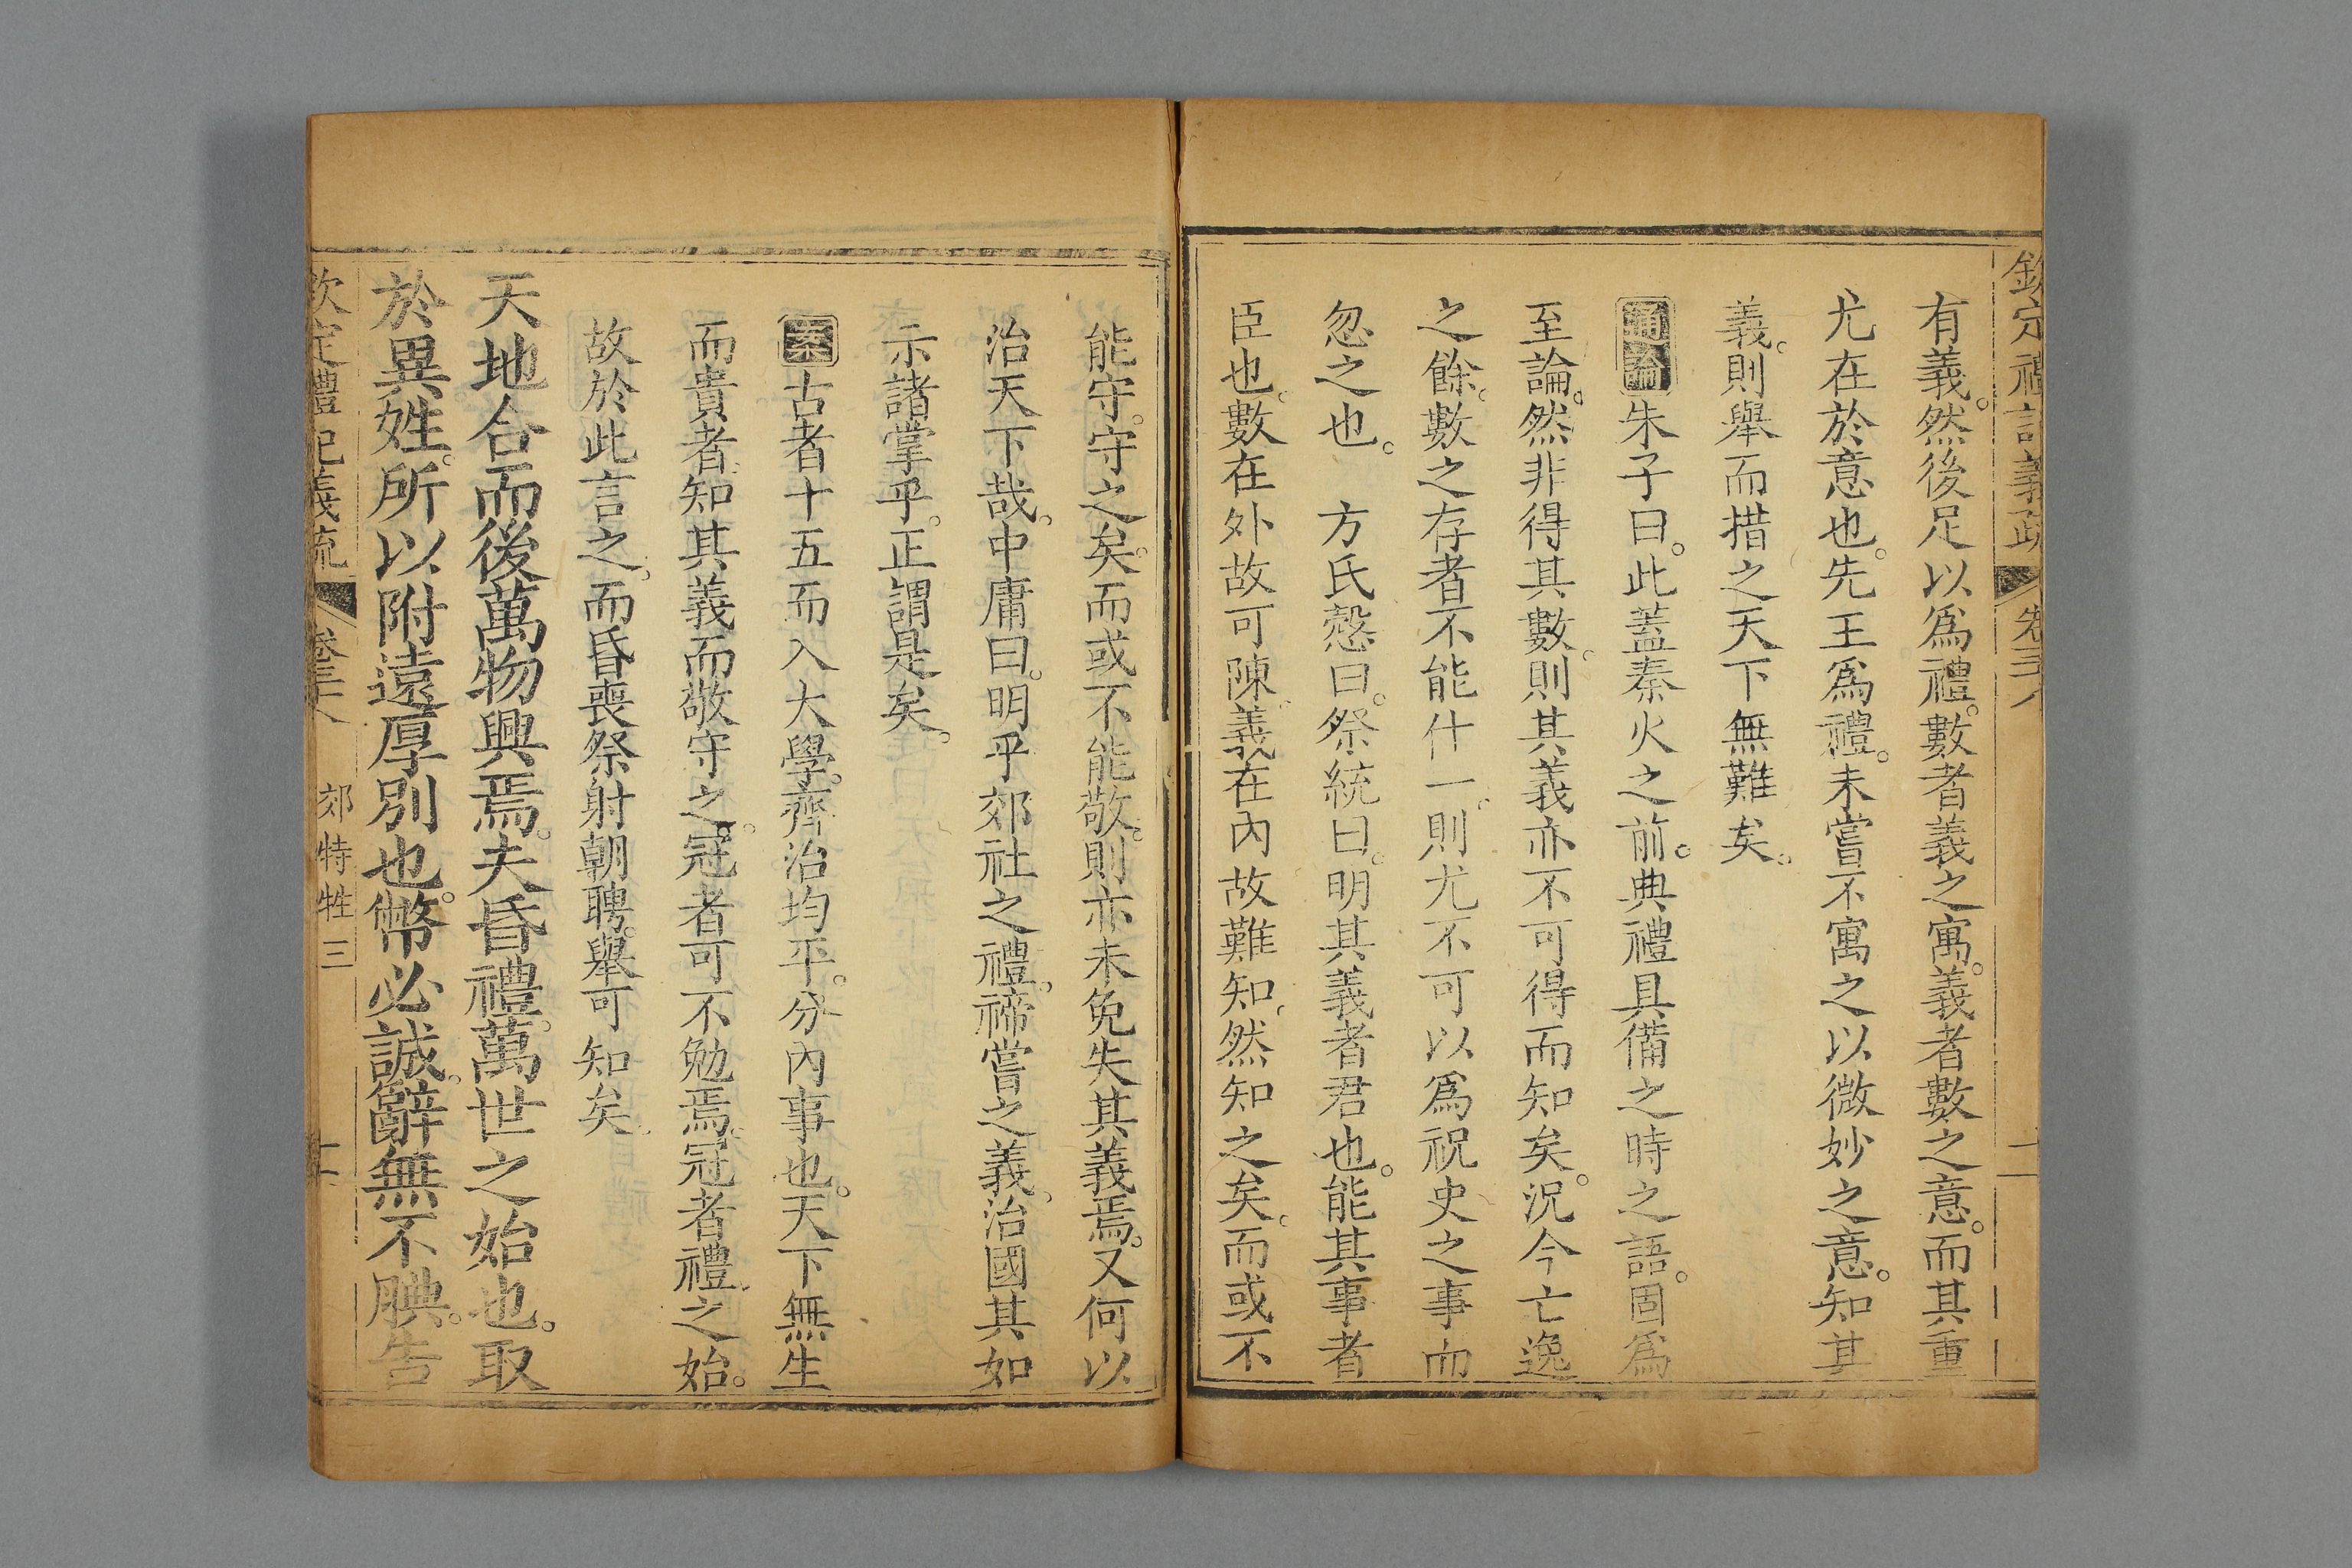 欽定禮記義疏 卷三十八
有義。然後足以爲禮。數者義之寓。義者數之意。而其重
尤在於意也。先王爲禮。未嘗不寓之以微妙之意。知其
義。則舉而措之天下無難矣。
通論朱子曰。此蓋秦火之前。典禮具備之時之語。固爲
至論。然非得其數。則其義亦不可得而知矣。況今亡逸
之餘。數之存者不能什一。則尤不可以爲祝史之事而
忽之也。 方氏慤曰。祭統曰。明其義者君也。能其事者
臣也。數在外故可陳。義在內故難知。然知之矣。而或不
能守。守之矣。而或不能敬。則亦未免失其義焉。又何以
治天下哉。中庸曰。明乎郊社之禮。禘嘗之義。治國其如
示諸掌乎。正謂是矣。
案古者十五而入大學。齊治均平。分內事也。天下無生
而貴者。知其義而敬守之。冠者可不勉焉。冠者禮之始。
故於此言之。而昏喪祭射朝聘。舉可知矣。
天地合而後萬物興焉。夫昏禮。萬世之始也。取
於異姓。所以附遠厚別也。幣必誠。辭無不腆。告
欽定禮記義疏 卷三十八 郊特牲三